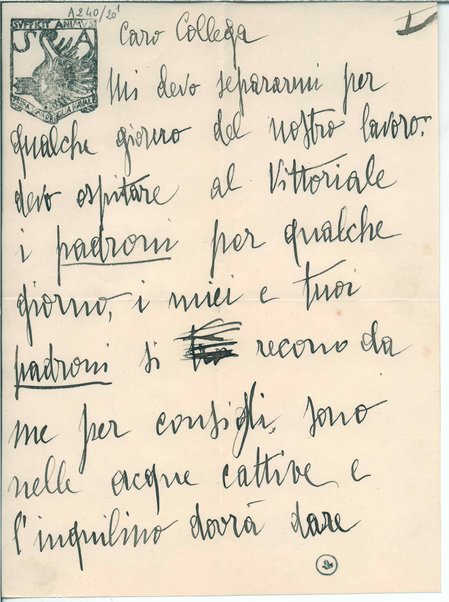 A240/201
SVFFICIT ANIMVS
S A
Caro Collega
Mi devo separarmi per
qualche giorno del nostro lavoro:
devo ospitare al Vittoriale
i padroni per qualche
giorno, i miei e tuoi
padroni si recono da
me per consigli, sono
nelle acque cattive e
l'inquilino dovrà dare